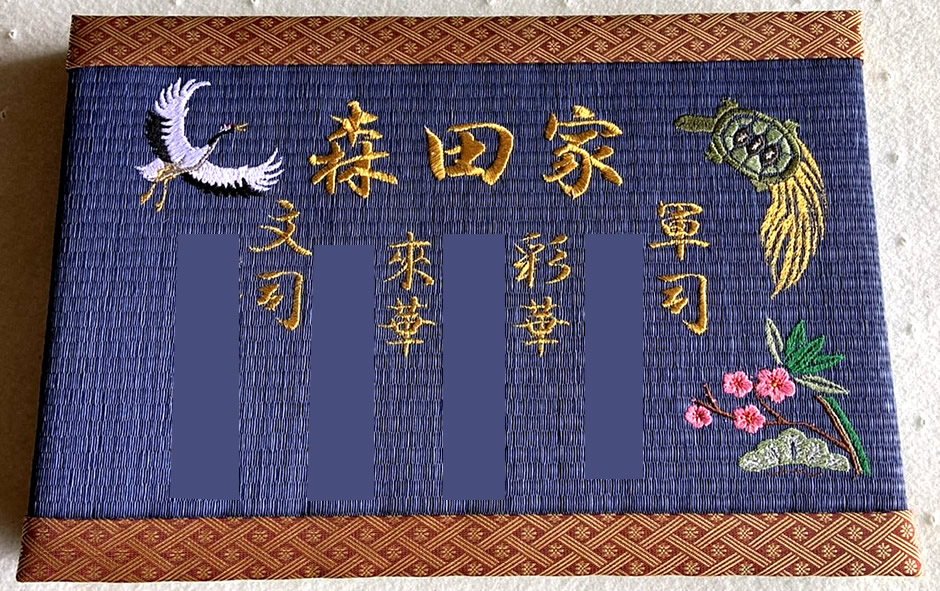 森田家
軍司
彩華
來華
文司